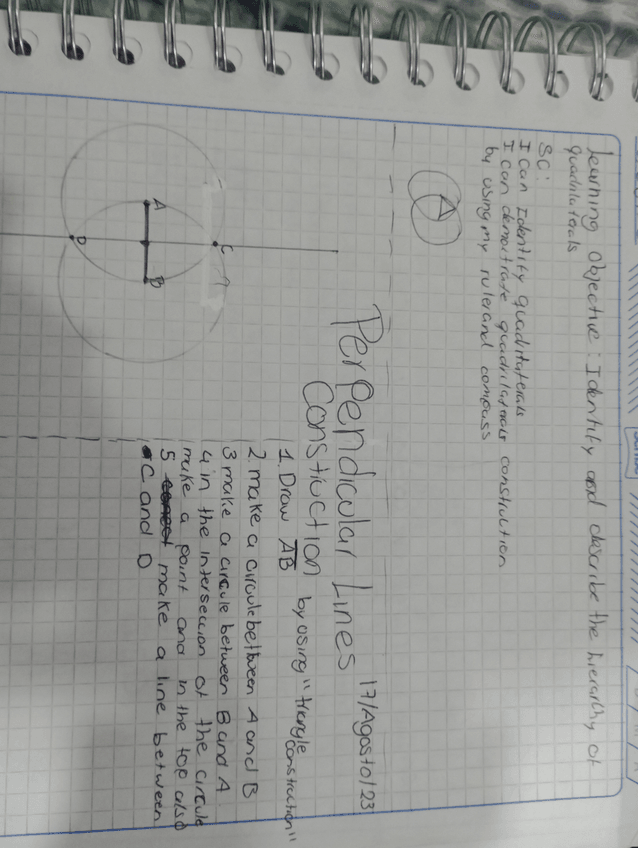 Learning Objective: Identify and describe the hierarchy of
quadrilaterals
SC:
I can Identify quadrilaterals
I can demostrate quadrilaterals construction
by using my ruler and compass
A
17/Agosto/23
Perpendicular Lines
Constiuction by using "triangle
construction"
1. Draw AB
2 make a circule between A and B
3 make a circule between B and A
4 in the intersecion of the circule
make a point and in the top also
5 make a line between
C and D
A
B
C
D